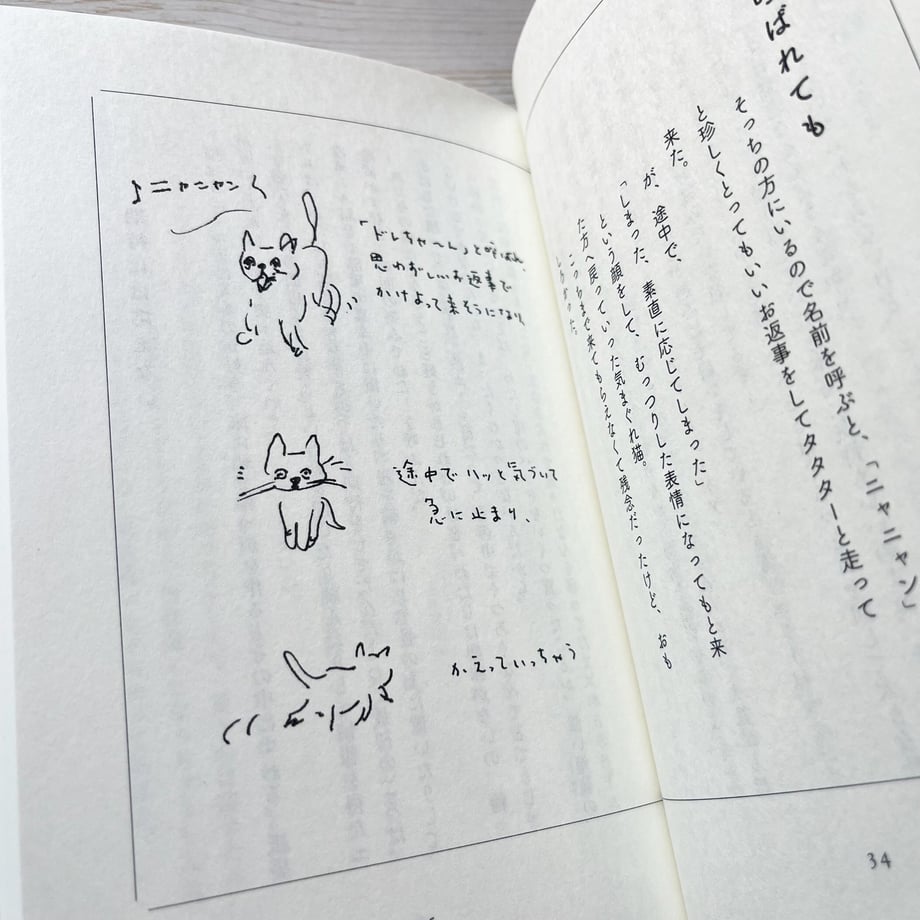 ばれても
そっちの方にいるので名前を呼ぶと、「ニャニャン」
と珍しくとってもいいお返事をしてタタターと走って
来た。
が、途中で、
「しまった、素直に応じてしまった」
という顔をして、むっつりした表情になってもと来
た方へ戻っていった気まぐれ猫。
こっちまで来てもらえなくて残念だったけど、おも
しろかった。
34
♪ニャニャン
「ドレちゃ〜ん」と呼ばれ、
思わずいいお返事で
かけよって来そうになり、
途中でハッと気づいて
急に止まり、
かえっていっちゃう